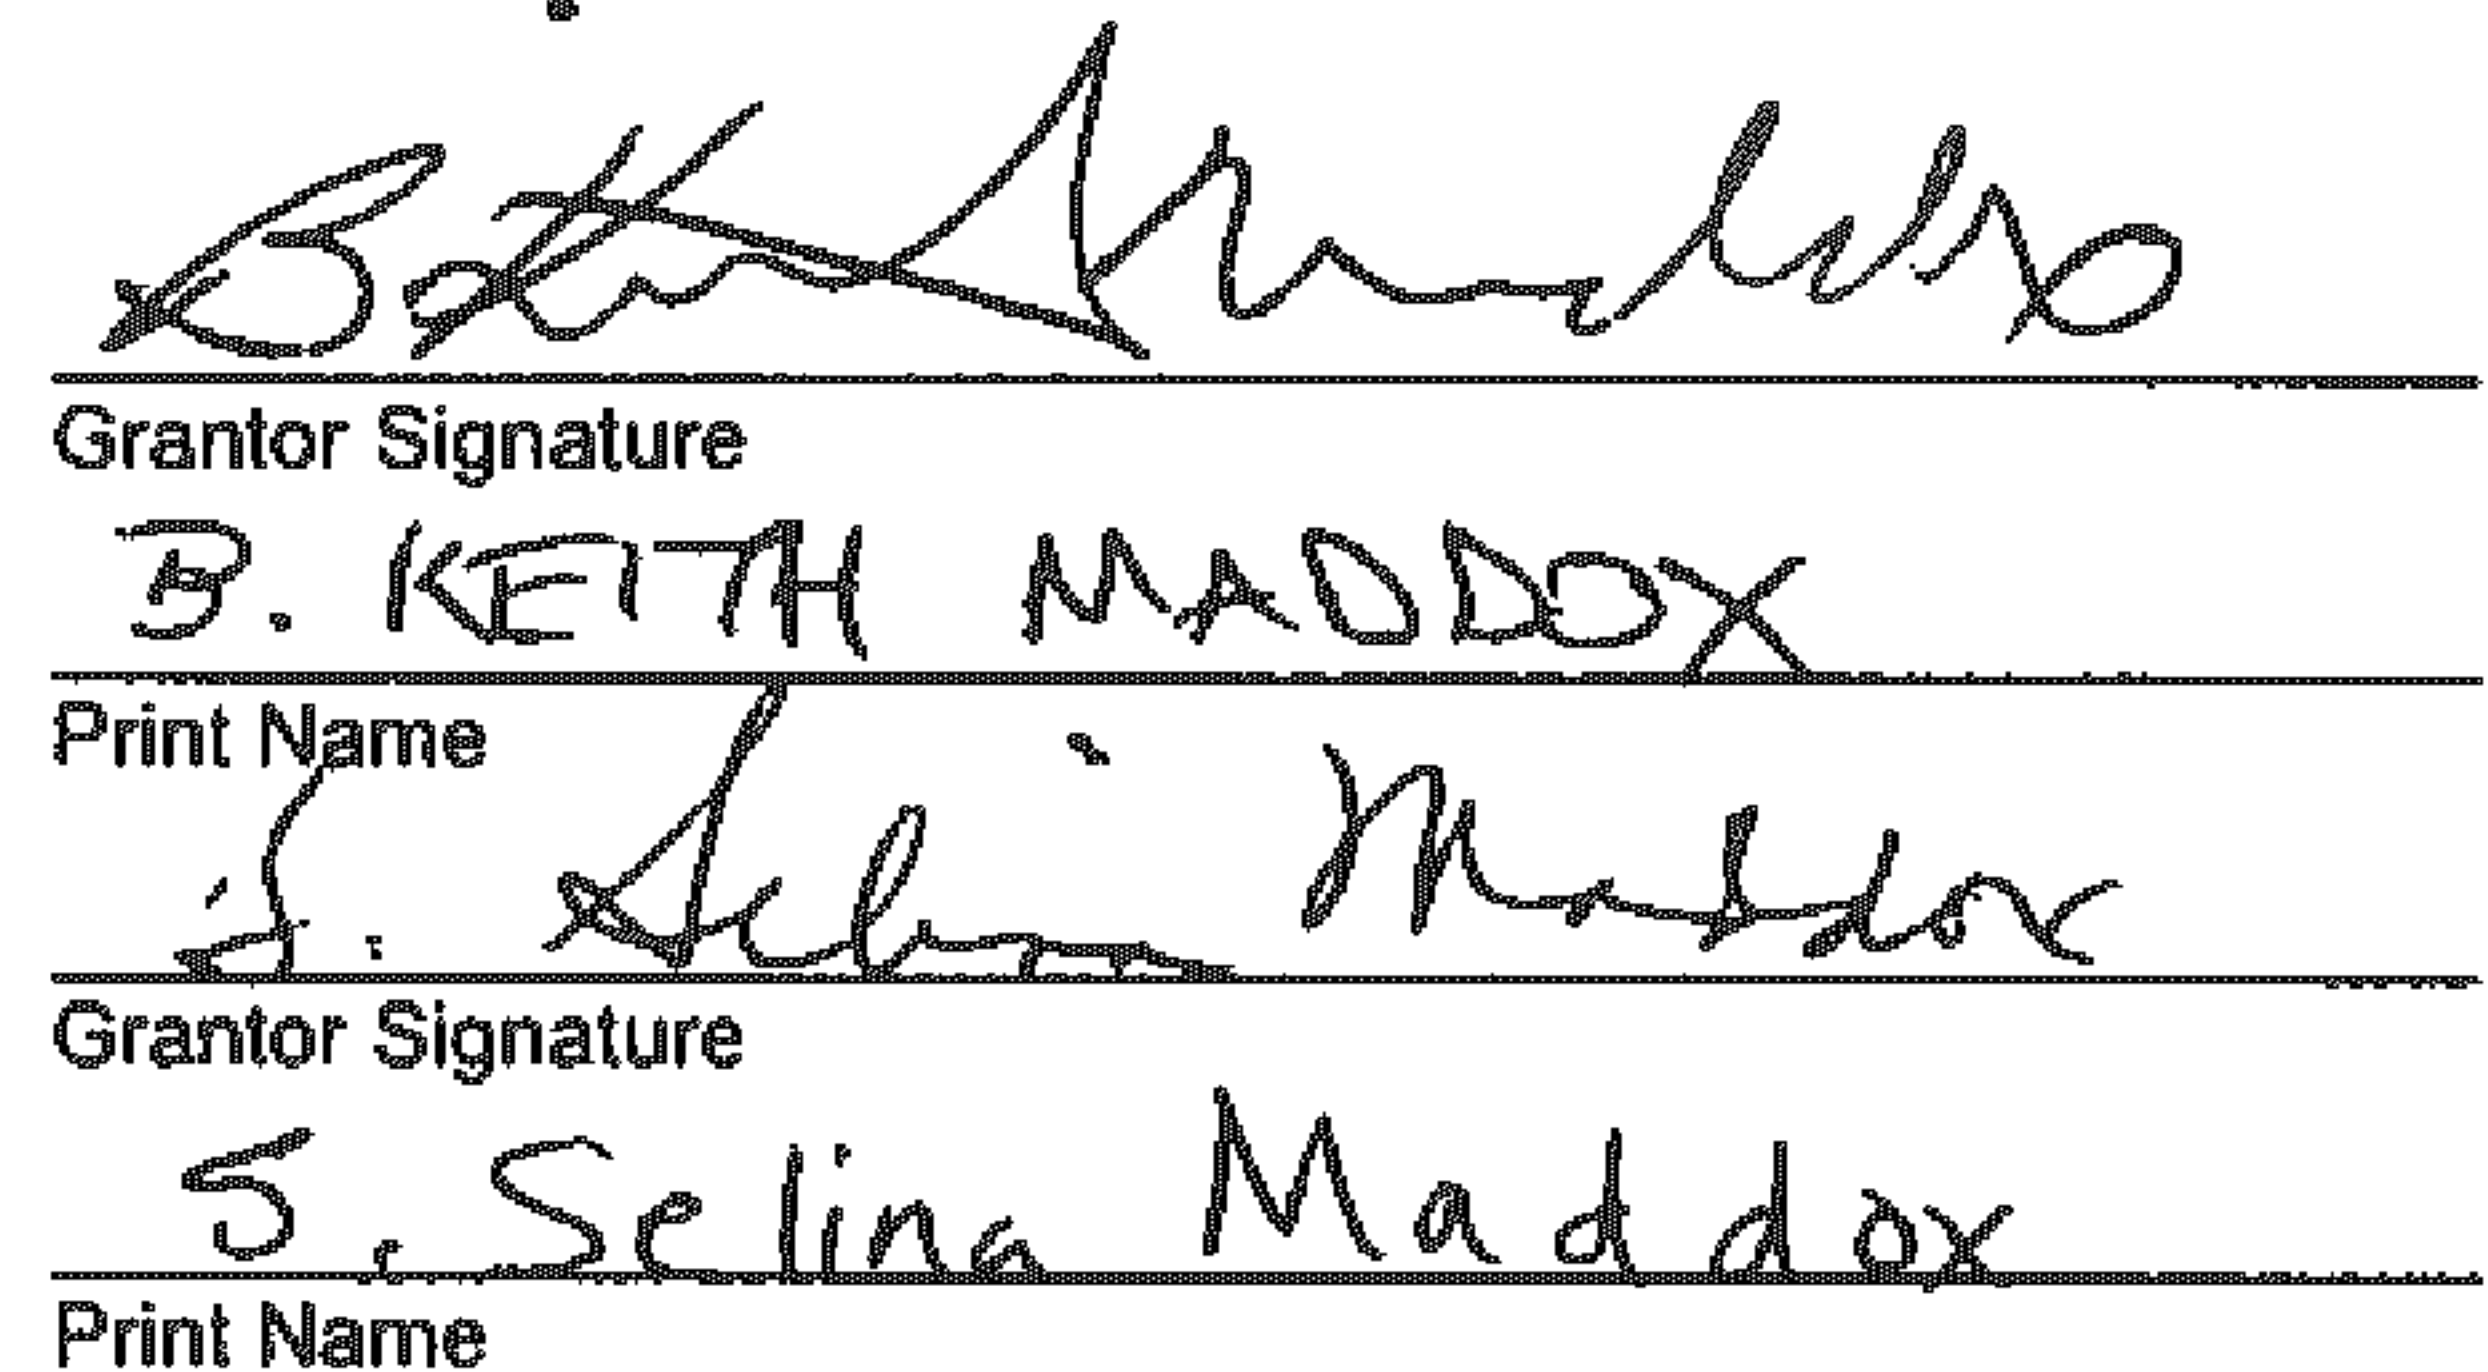 Grantor Signature
B. KEITH MADDOX
Print Name
S. Selina Maddox
Grantor Signature
S. Selina Maddox
Print Name